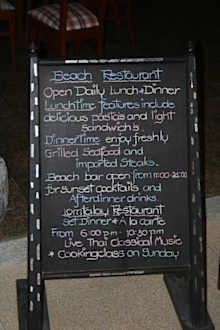 Beach Restaurant
Open Daily Lunch & Dinner
Lunchtime features include
delicious pastas and light
Sandwich's
Dinnertime enjoy freshly
Grilled Seafood and
imported Steaks.
Beach bar open from 11:00-
for sunset cocktails and
After dinner drinks.
Restaurant
Set Dinner & A la carte
From 6:00 pm - 10:30 pm
Live Thai Classical Music
* Cooking class on Sunday